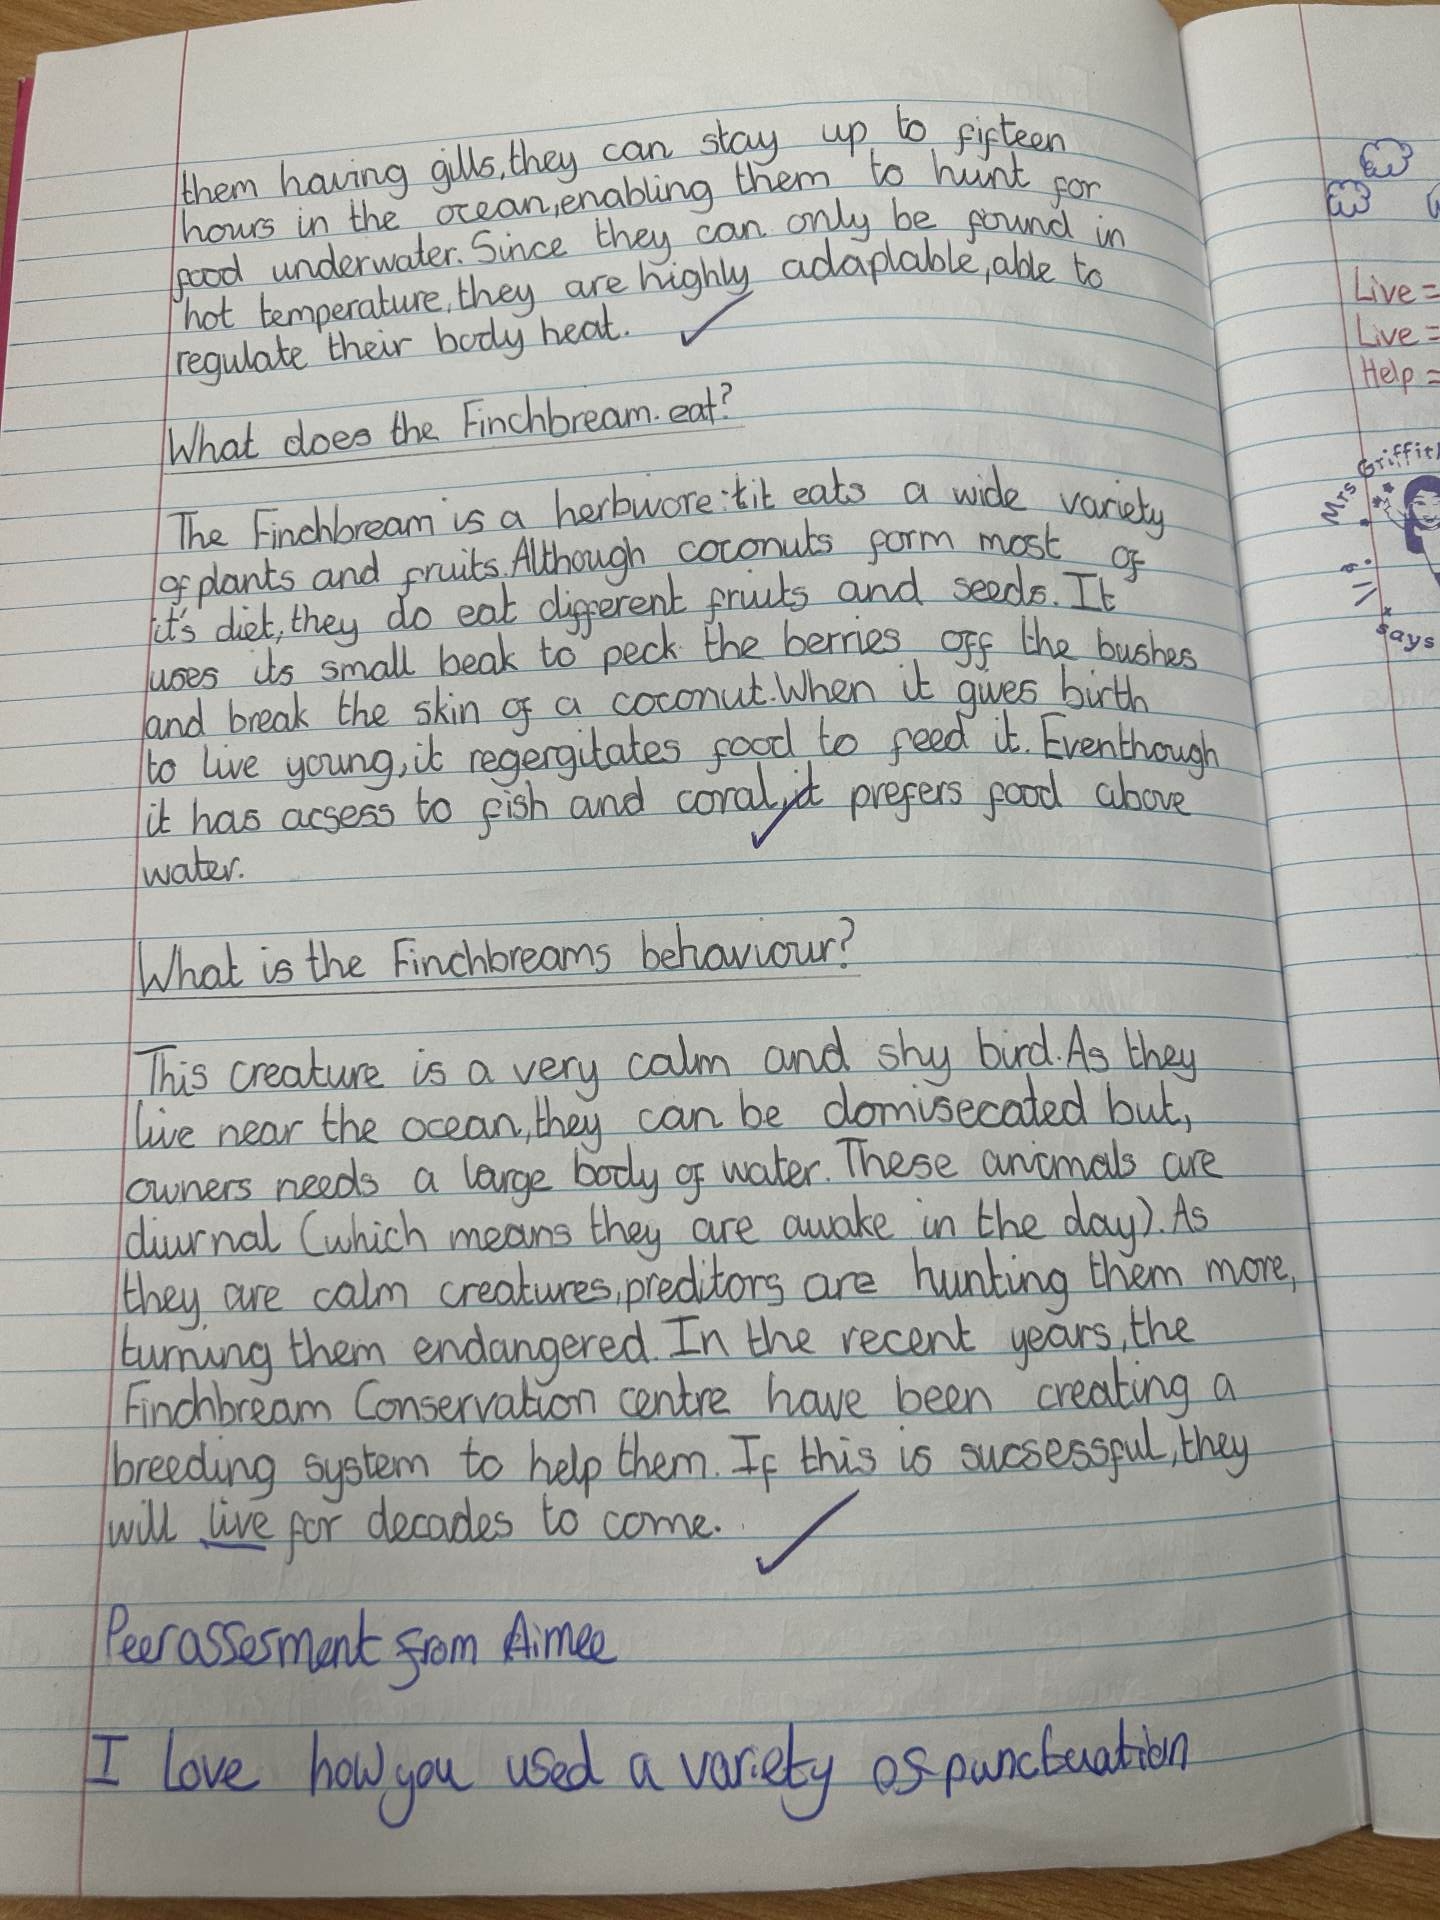 them having gills, they can stay up to fifteen
hours in the ocean, enabling them to hunt for
food underwater. Since they can only be found in
hot temperature, they are highly adaptable, able to
regulate their body heat.
What does the Finchbream eat?
The Finchbream is a herbivore: tit eats a wide variety
of plants and fruits. Although coconuts form most of
it's diet, they do eat different fruits and seeds. It
uses its small beak to peck the berries off the bushes
and break the skin of a coconut. When it gives birth
to live young, it regergitates food to feed it. Eventhough
it has acsess to fish and coral, it prefers food above
water.
What is the Finchbreams behaviour?
This creature is a very calm and shy bird. As they
live near the ocean, they can be domisecated but,
owners needs a large body of water. These animals are
diurnal (which means they are awake in the day). As
they are calm creatures, preditors are hunting them more,
turning them endangered. In the recent years, the
Finchbream Conservation centre have been creating a
breeding system to help them. If this is sucsessful, they
will live for decades to come.
Peer assesment from Aimee
I love how you used a variety of punctuation
Live =
Live =
Help =
Mrs Griffith
says